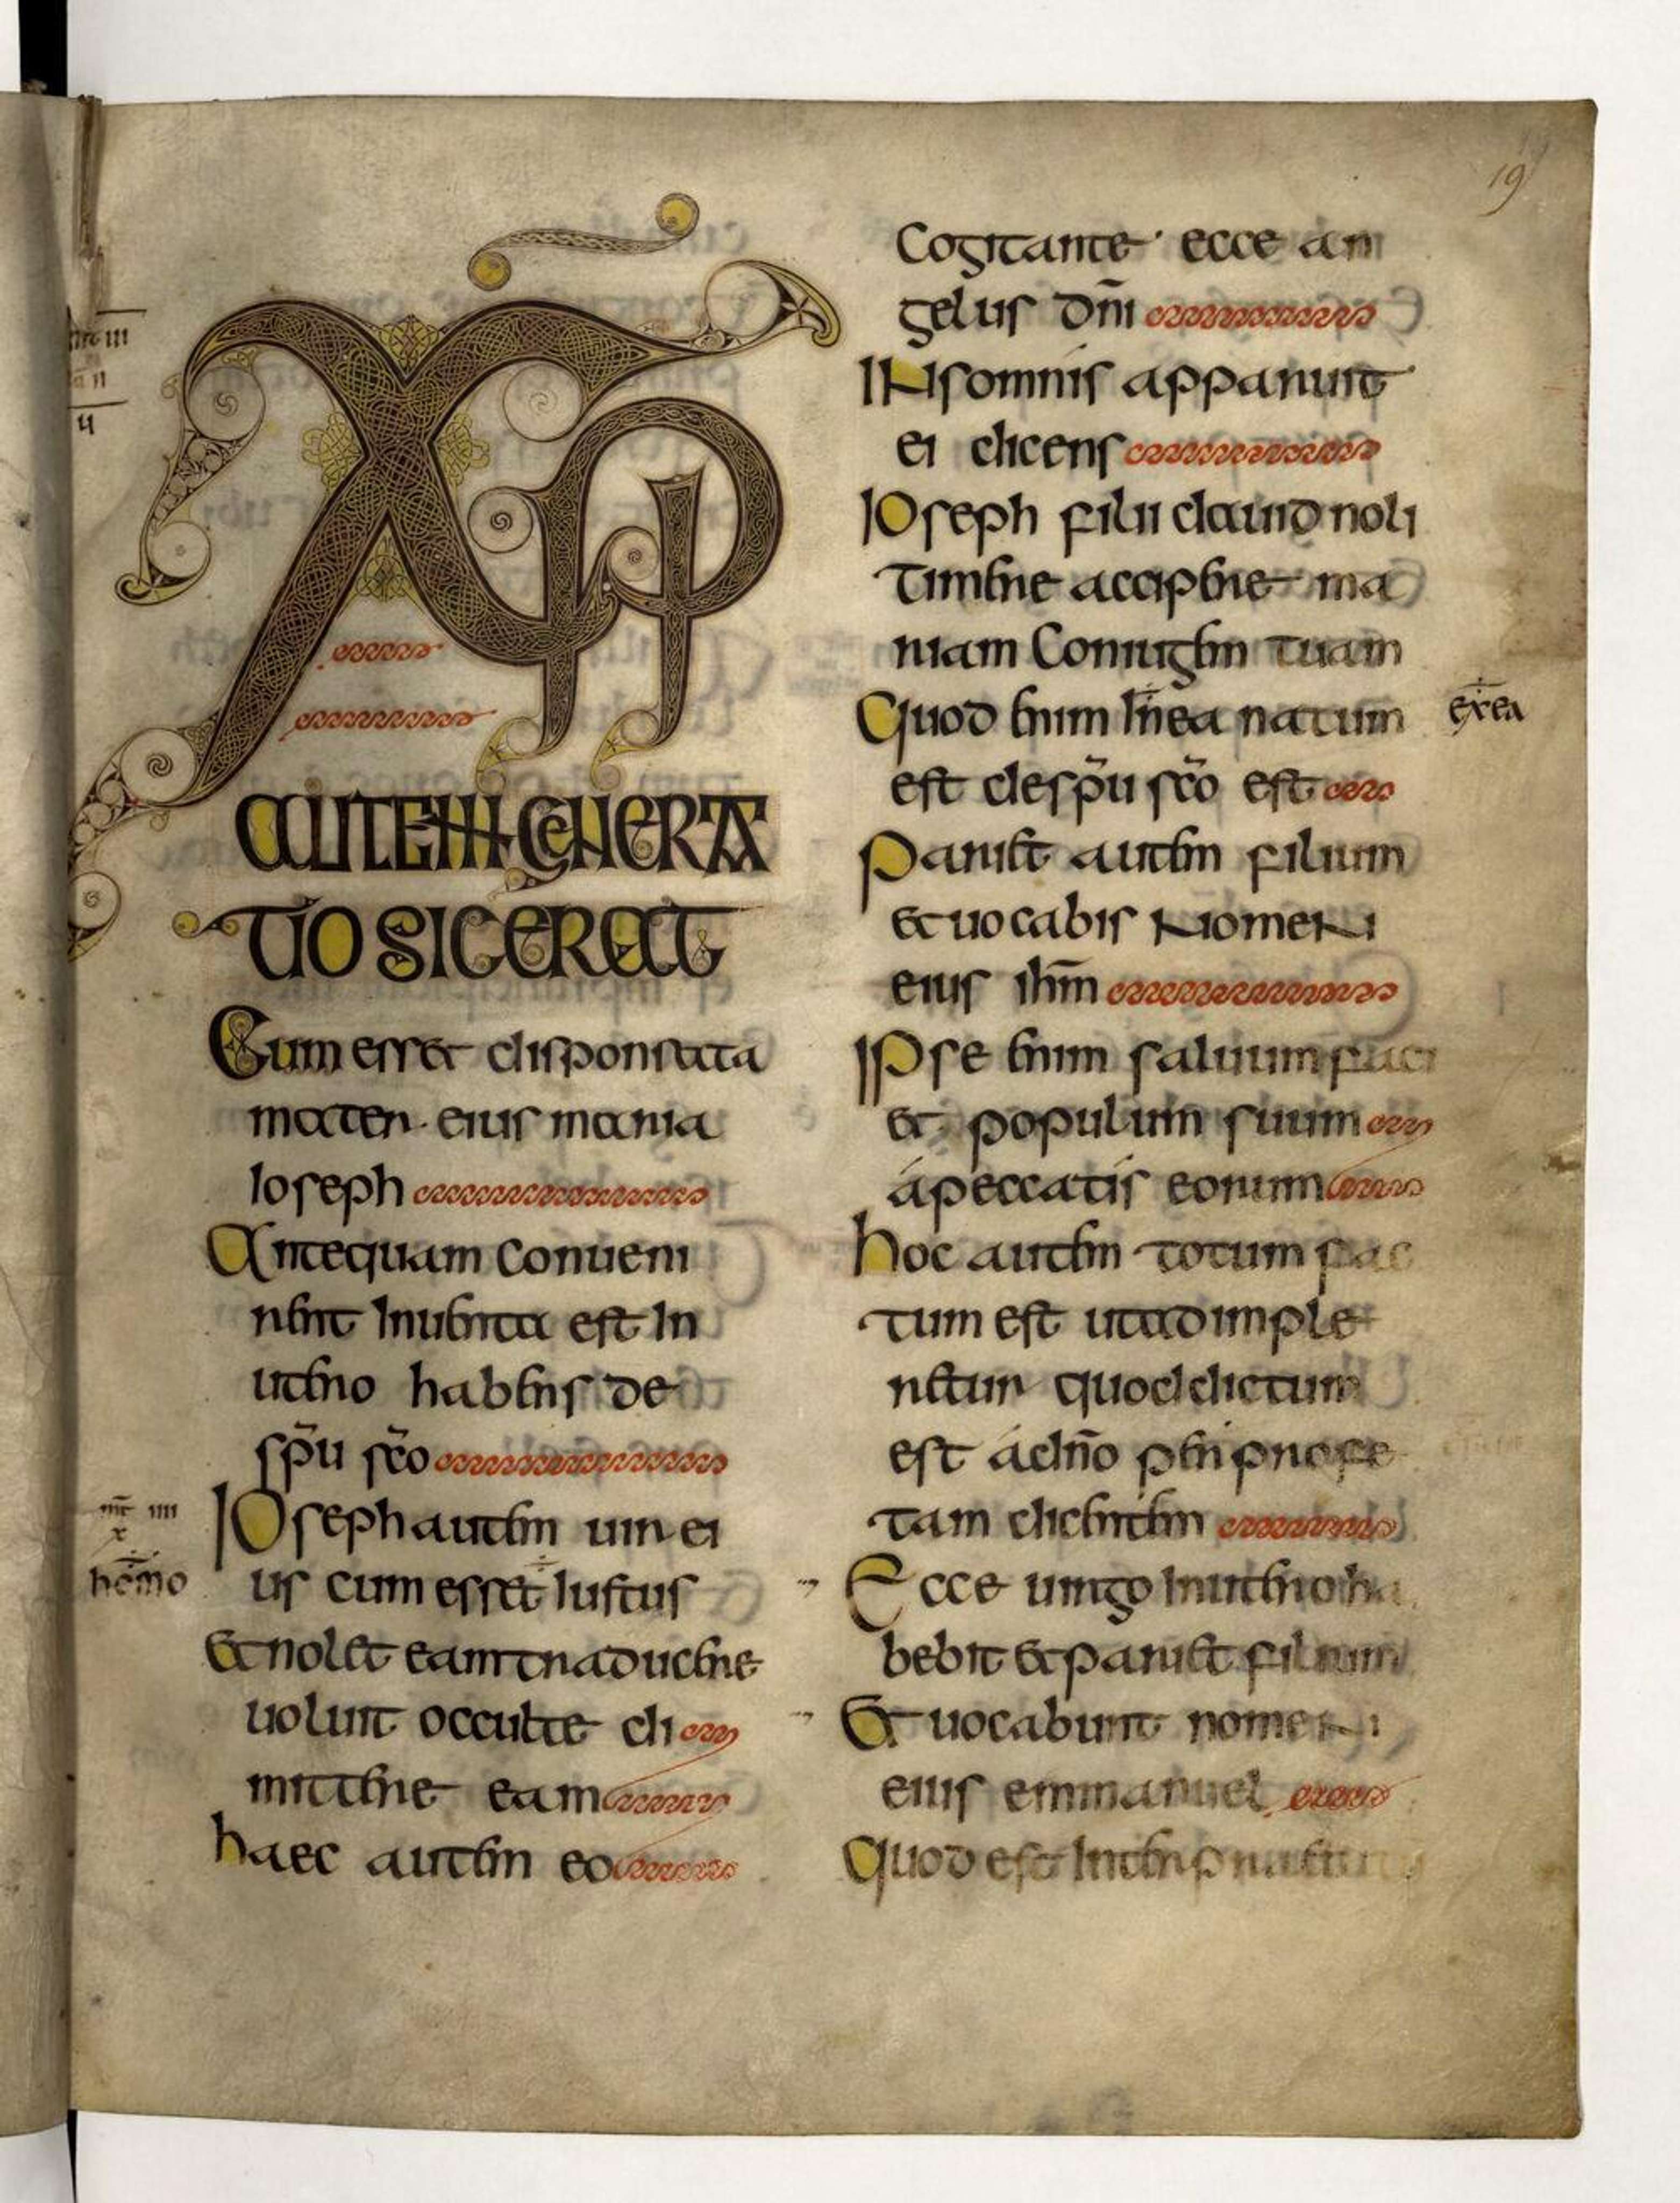 19
XPI
AUTEM GENERA
TIO SIC ERAT
Cum esset disponsata
mater eius maria
Ioseph
Antequam conueni
rent Inuenta est In
utero habens de
spū sc̄o
Ioseph autem uir ei
us cum esset Iustus
et nollet eam traducere
uoluit occulte di
mittere eam
haec autem eo
Cogitante ecce an
gelus dn̄i
IN somnis apparuit
ei dicens
Ioseph filii dauid noli
timere accipere ma
riam Coniugem tuam
Quod enim In ea natum
exea
est de spū sc̄o est
Pariet autem filium
et uocabis Nomen
eius ih̄m
Ipse enim saluum faci
et populum suum
á peccatis eorum
hoc autem totum fac
tum est ut ad imple
retur quod dictum
est á dn̄o per profe
tam dicentem
Ecce uirgo In utero ha
bebit et pariet filium
Et uocabunt nomen
eius emmanuel
Quod est